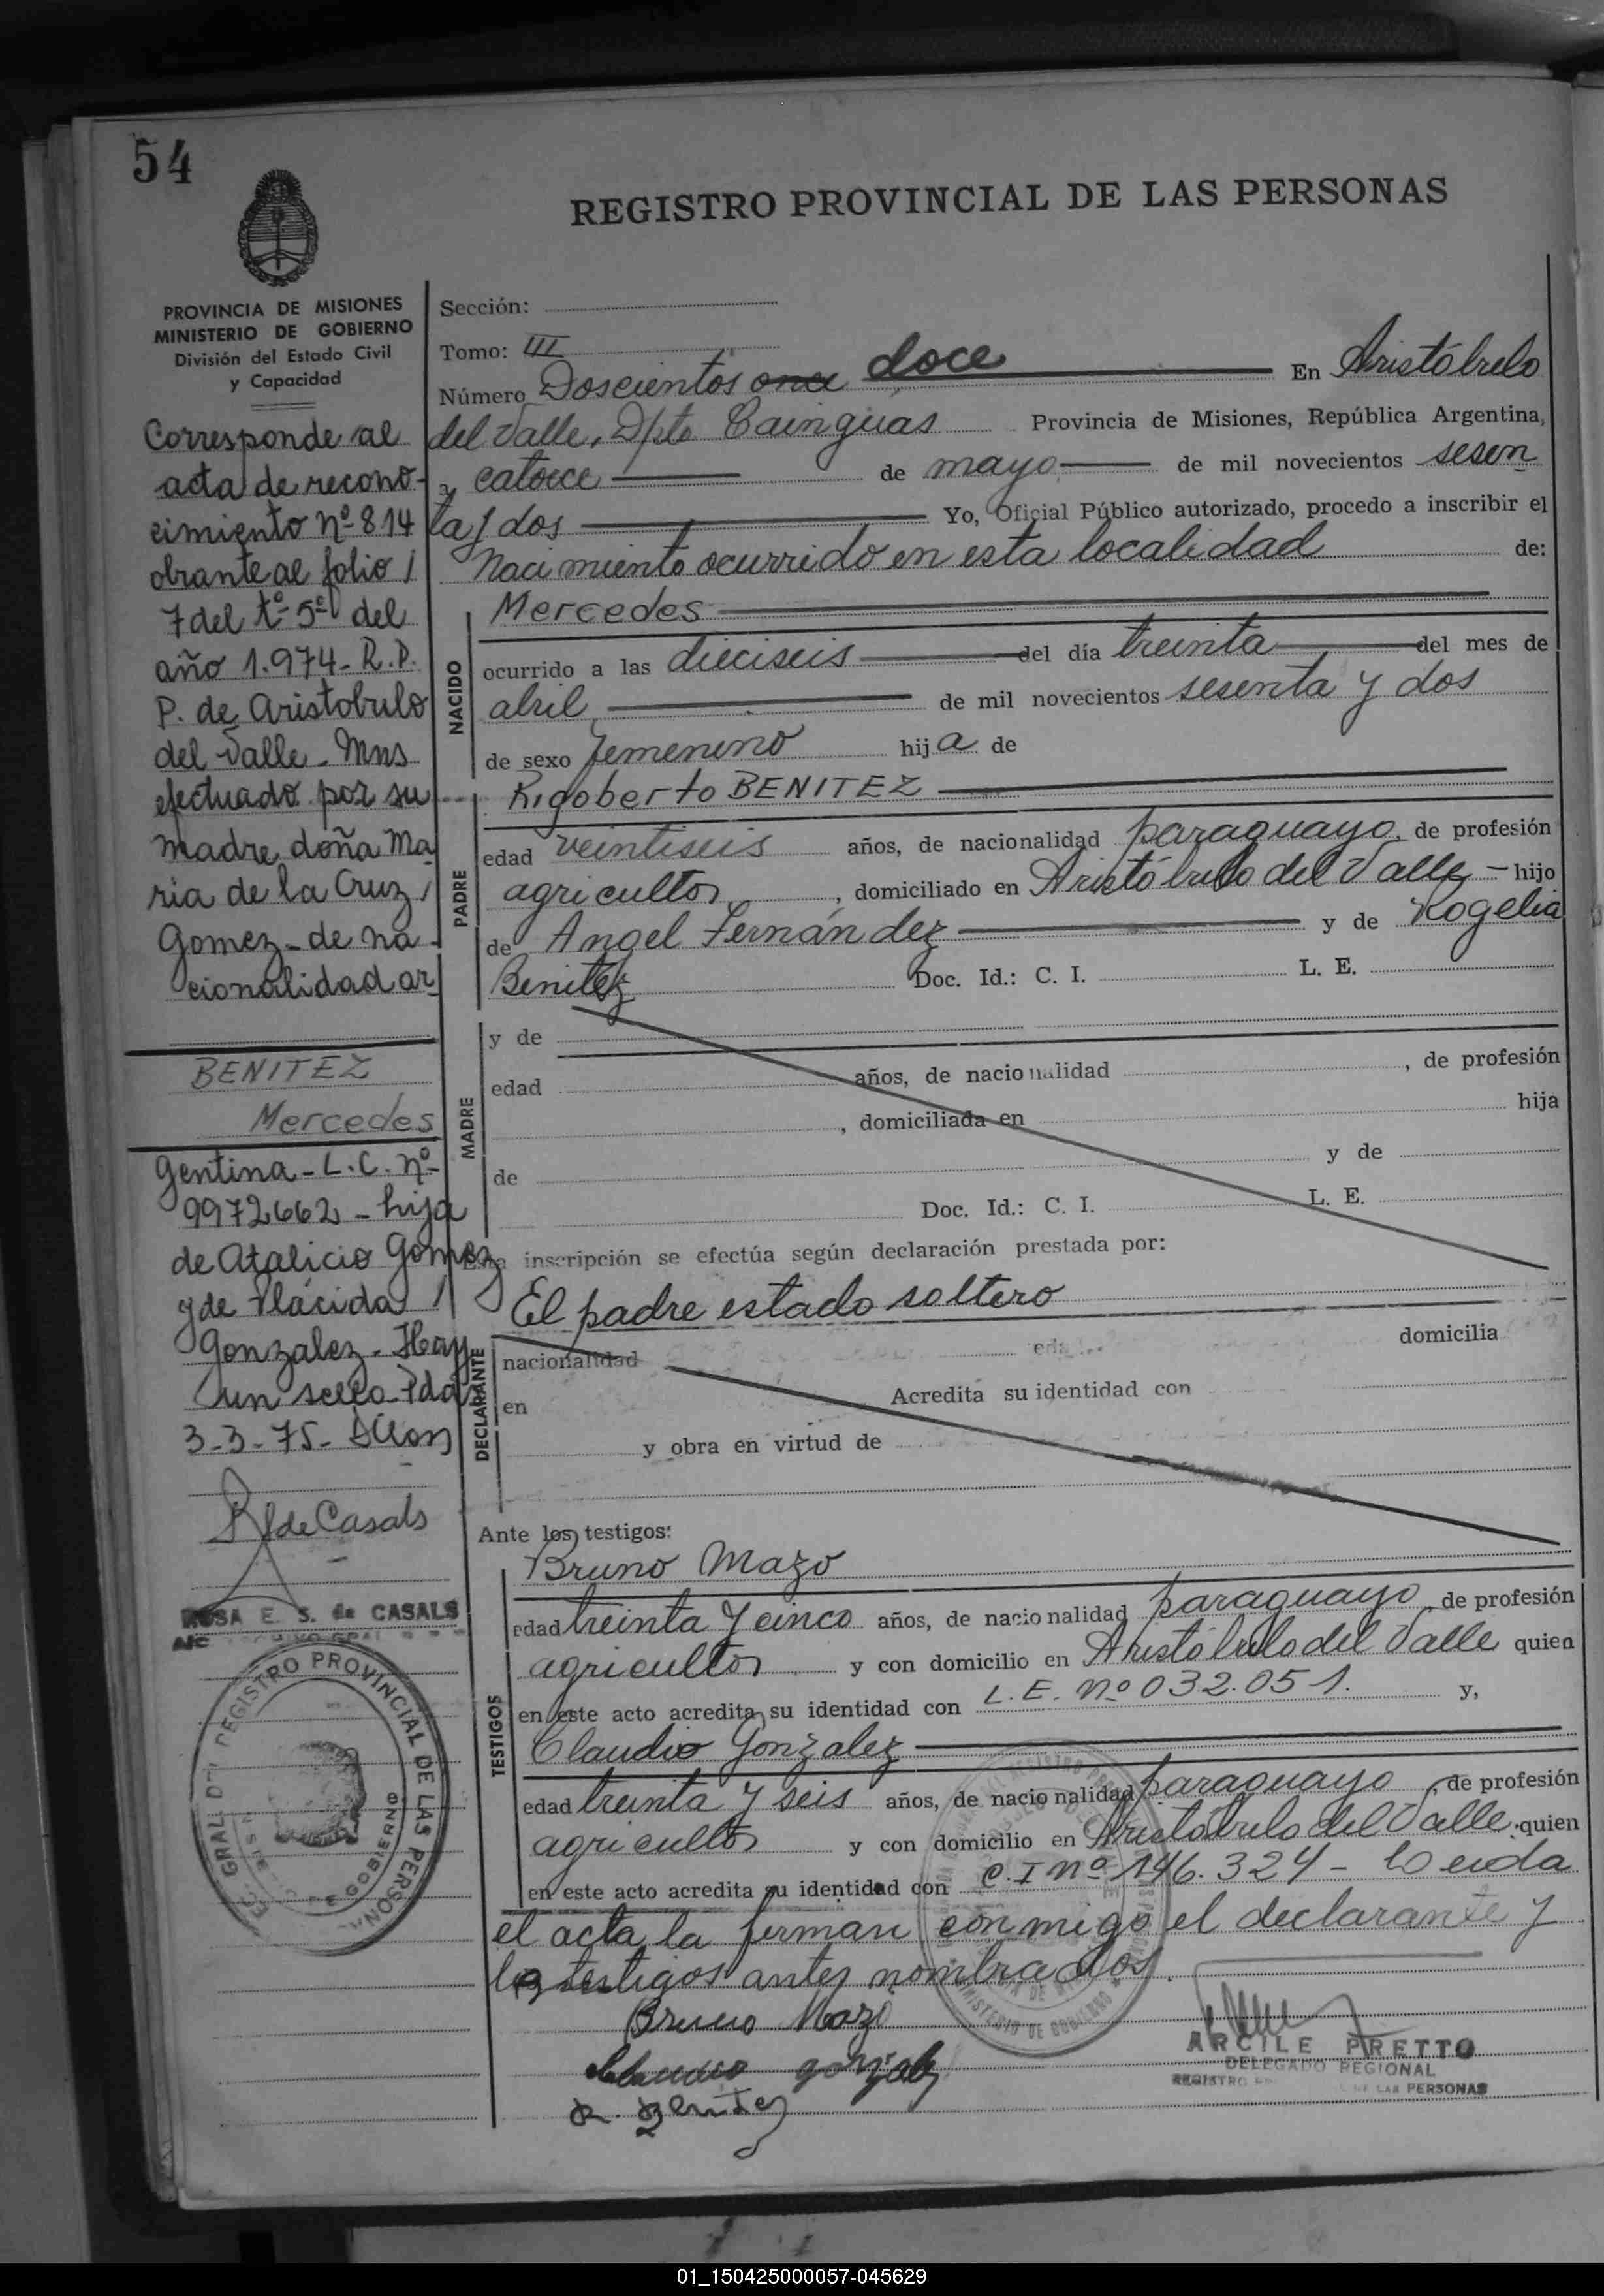 54
REGISTRO PROVINCIAL DE LAS PERSONAS
PROVINCIA DE MISIONES
MINISTERIO DE GOBIERNO
División del Estado Civil
y Capacidad
Corresponde al
acta de recono-
cimiento nº 814
obrante al folio /
7 del tº 5º del
año 1.974- R.P.
P. de Aristobulo
del Valle - Mns
efectuado por su
madre doña Ma
ria de la Cruz /
Gomez - de na -
cionalidad ar
BENITEZ
Mercedes
gentina - L.C. nº
9972662 - hija
de Atalicio Gomez
y de Plácida /
Gonzalez - Hay
un sello - Pdas
3-3-75-
de Casals
ROSA E. S. de CASALS
REGISTRO PROVINCIAL DE LAS PERSONAS
DE GOBIERNO
Sección:
Tomo: III
Número Doscientos once doce En Aristóbulo
del Valle, Dpto Cainguás Provincia de Misiones, República Argentina,
a catorce de mayo de mil novecientos sesen
ta y dos Yo, Oficial Público autorizado, procedo a inscribir el
Nacimiento ocurrido en esta localidad de:
NACIDO
Mercedes
ocurrido a las dieciseis del día treinta del mes de
abril de mil novecientos sesenta y dos
de sexo femenino hija de
PADRE
Rigoberto BENITEZ
edad veintiseis años, de nacionalidad paraguayo, de profesión
agricultor, domiciliado en Aristóbulo del Valle - hijo
de Angel Fernández y de Rogelia
Benitez Doc. Id.: C. I. L. E.
MADRE
y de
edad años, de nacionalidad , de profesión
, domiciliada en hija
de y de
Doc. Id.: C. I. L. E.
Esta inscripción se efectúa según declaración prestada por:
El padre estado soltero
DECLARANTE
nacionalidad edad domicilia
en Acredita su identidad con
y obra en virtud de
Ante los testigos:
TESTIGOS
Bruno Mazo
edad treinta y cinco años, de nacionalidad paraguayo, de profesión
agricultor y con domicilio en Aristóbulo del Valle quien
en este acto acredita su identidad con L.E. nº 032.051. y,
Claudio Gonzalez
edad treinta y seis años, de nacionalidad paraguayo, de profesión
agricultor y con domicilio en Aristóbulo del Valle, quien
en este acto acredita su identidad con C.I nº 146.324 - Leida
el acta, la firman conmigo el declarante y
los testigos antes nombrados.
Bruno Mazo
Claudio gonzalez
R. Benitez
MINISTERIO DE GOBIERNO
ARCILE PIRETTO
DELEGADO REGIONAL
REGISTRO DE LAS PERSONAS
01_150425000057-045629